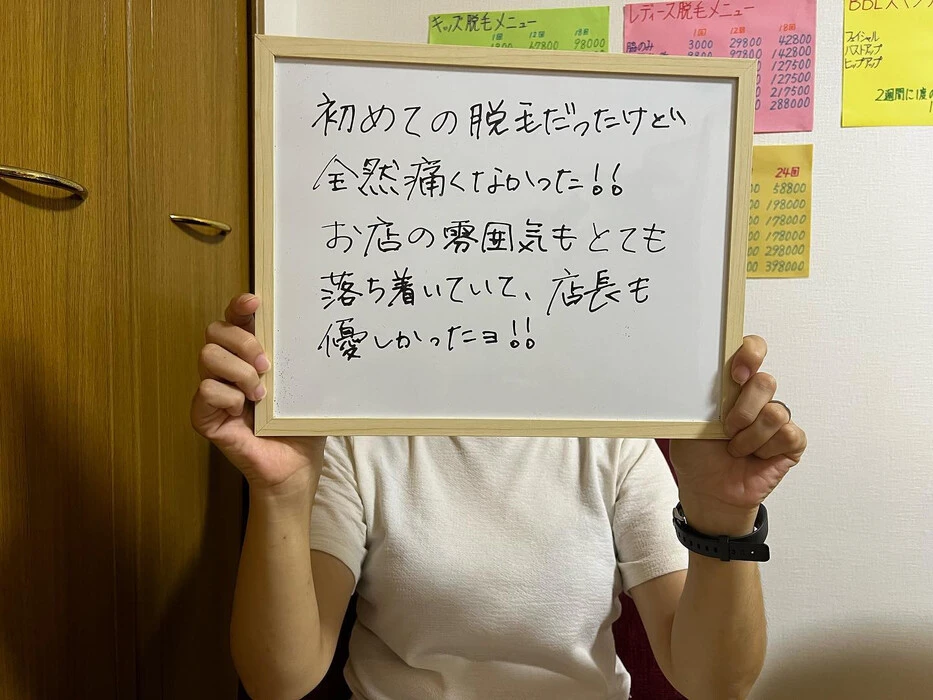 初めての脱毛だったけど
全然痛くなかった!!
お店の雰囲気もとても
落ち着いていて、店長も
優しかったヨ!!
キッズ脱毛メニュー
1回 12回 18回
98000
レディース脱毛メニュー
1回 12回 18回
脇のみ 3000 29800 42800
142800
127500
127500
217500
288000
フェイシャル
バストアップ
ヒップアップ
2週間に1度の
24回
58800
198000
178000
178000
298000
398000